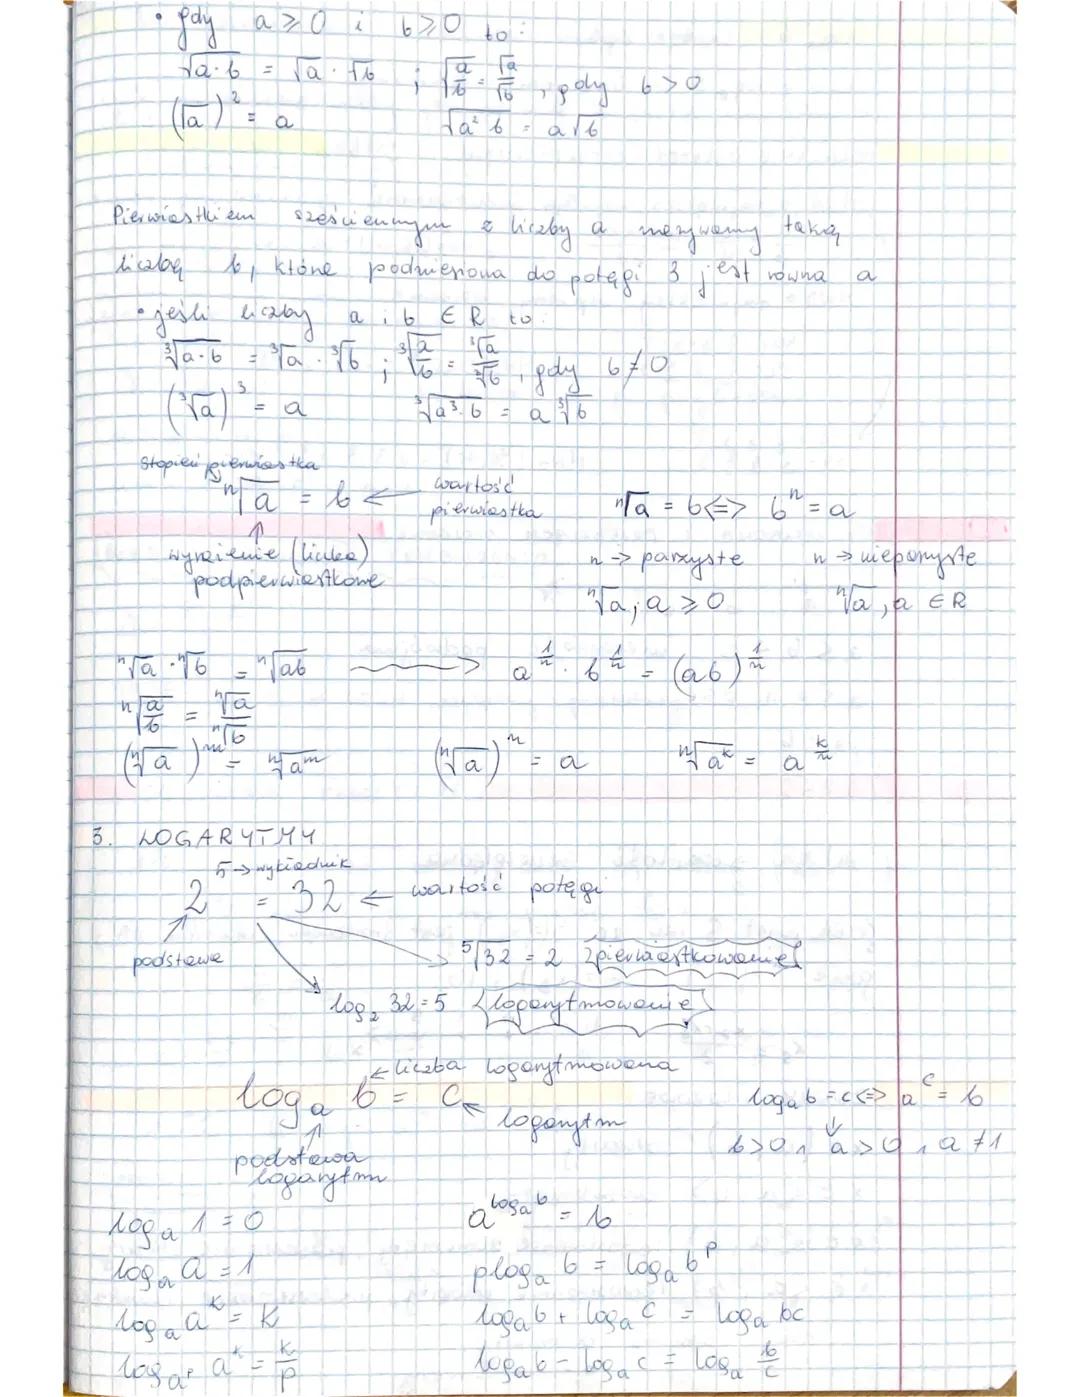 • gdy a ⩾ 0 i b ⩾ 0 to:
√(a·b) = √a · √b ; √(a/b) = √a/√b , gdy b > 0
(√a)² = a √(a²b) = a√b
Pierwiastkiem sześciennym z liczby a nazywamy taką
liczbę b, która podniesiona do potęgi 3 jest równa a
• jeśli liczby a i b ∈ R to:
³√(a·b) = ³√a · ³√b ; ³√(a/b) = ³√a/³√b , gdy b ≠ 0
(³√a)³ = a ³√(a³·b) = a ³√b
stopień pierwiastka
ⁿ√a = b ← wartość pierwiastka ⁿ√a = b <=> bⁿ = a
↑
wyrażenie (liczba) n -> parzyste n -> nieparzyste
podpierwiastkowe ⁿ√a, a ⩾ 0 ⁿ√a, a ∈ R
ⁿ√a · ⁿ√b = ⁿ√(ab) → a^(1/n) · b^(1/n) = (ab)^(1/n)
ⁿ√(a/b) = ⁿ√a/ⁿ√b
(ⁿ√a)^m = ⁿ√(a^m) (ⁿ√a)ⁿ = a ⁿ√(a^k) = a^(k/n)
3. LOGARYTMY
5 -> wykładnik
2⁵ = 32 ← wartość potęgi
podstawa ⁵√32 = 2 {pierwiastkowanie}
log₂ 32 = 5 {logarytmowanie}
← liczba logarytmowana
logₐ b = c ← logarytm logₐ b = c <=> a^c = b
↑ ↓
podstawa b > 0, a > 0, a ≠ 1
logarytmu
logₐ 1 = 0 a^(logₐ b) = b
logₐ a = 1 p logₐ b = logₐ b^p
logₐ a^k = k logₐ b + logₐ c = logₐ bc
log_(a^p) a^k = k/p logₐ b - logₐ c = logₐ b/c